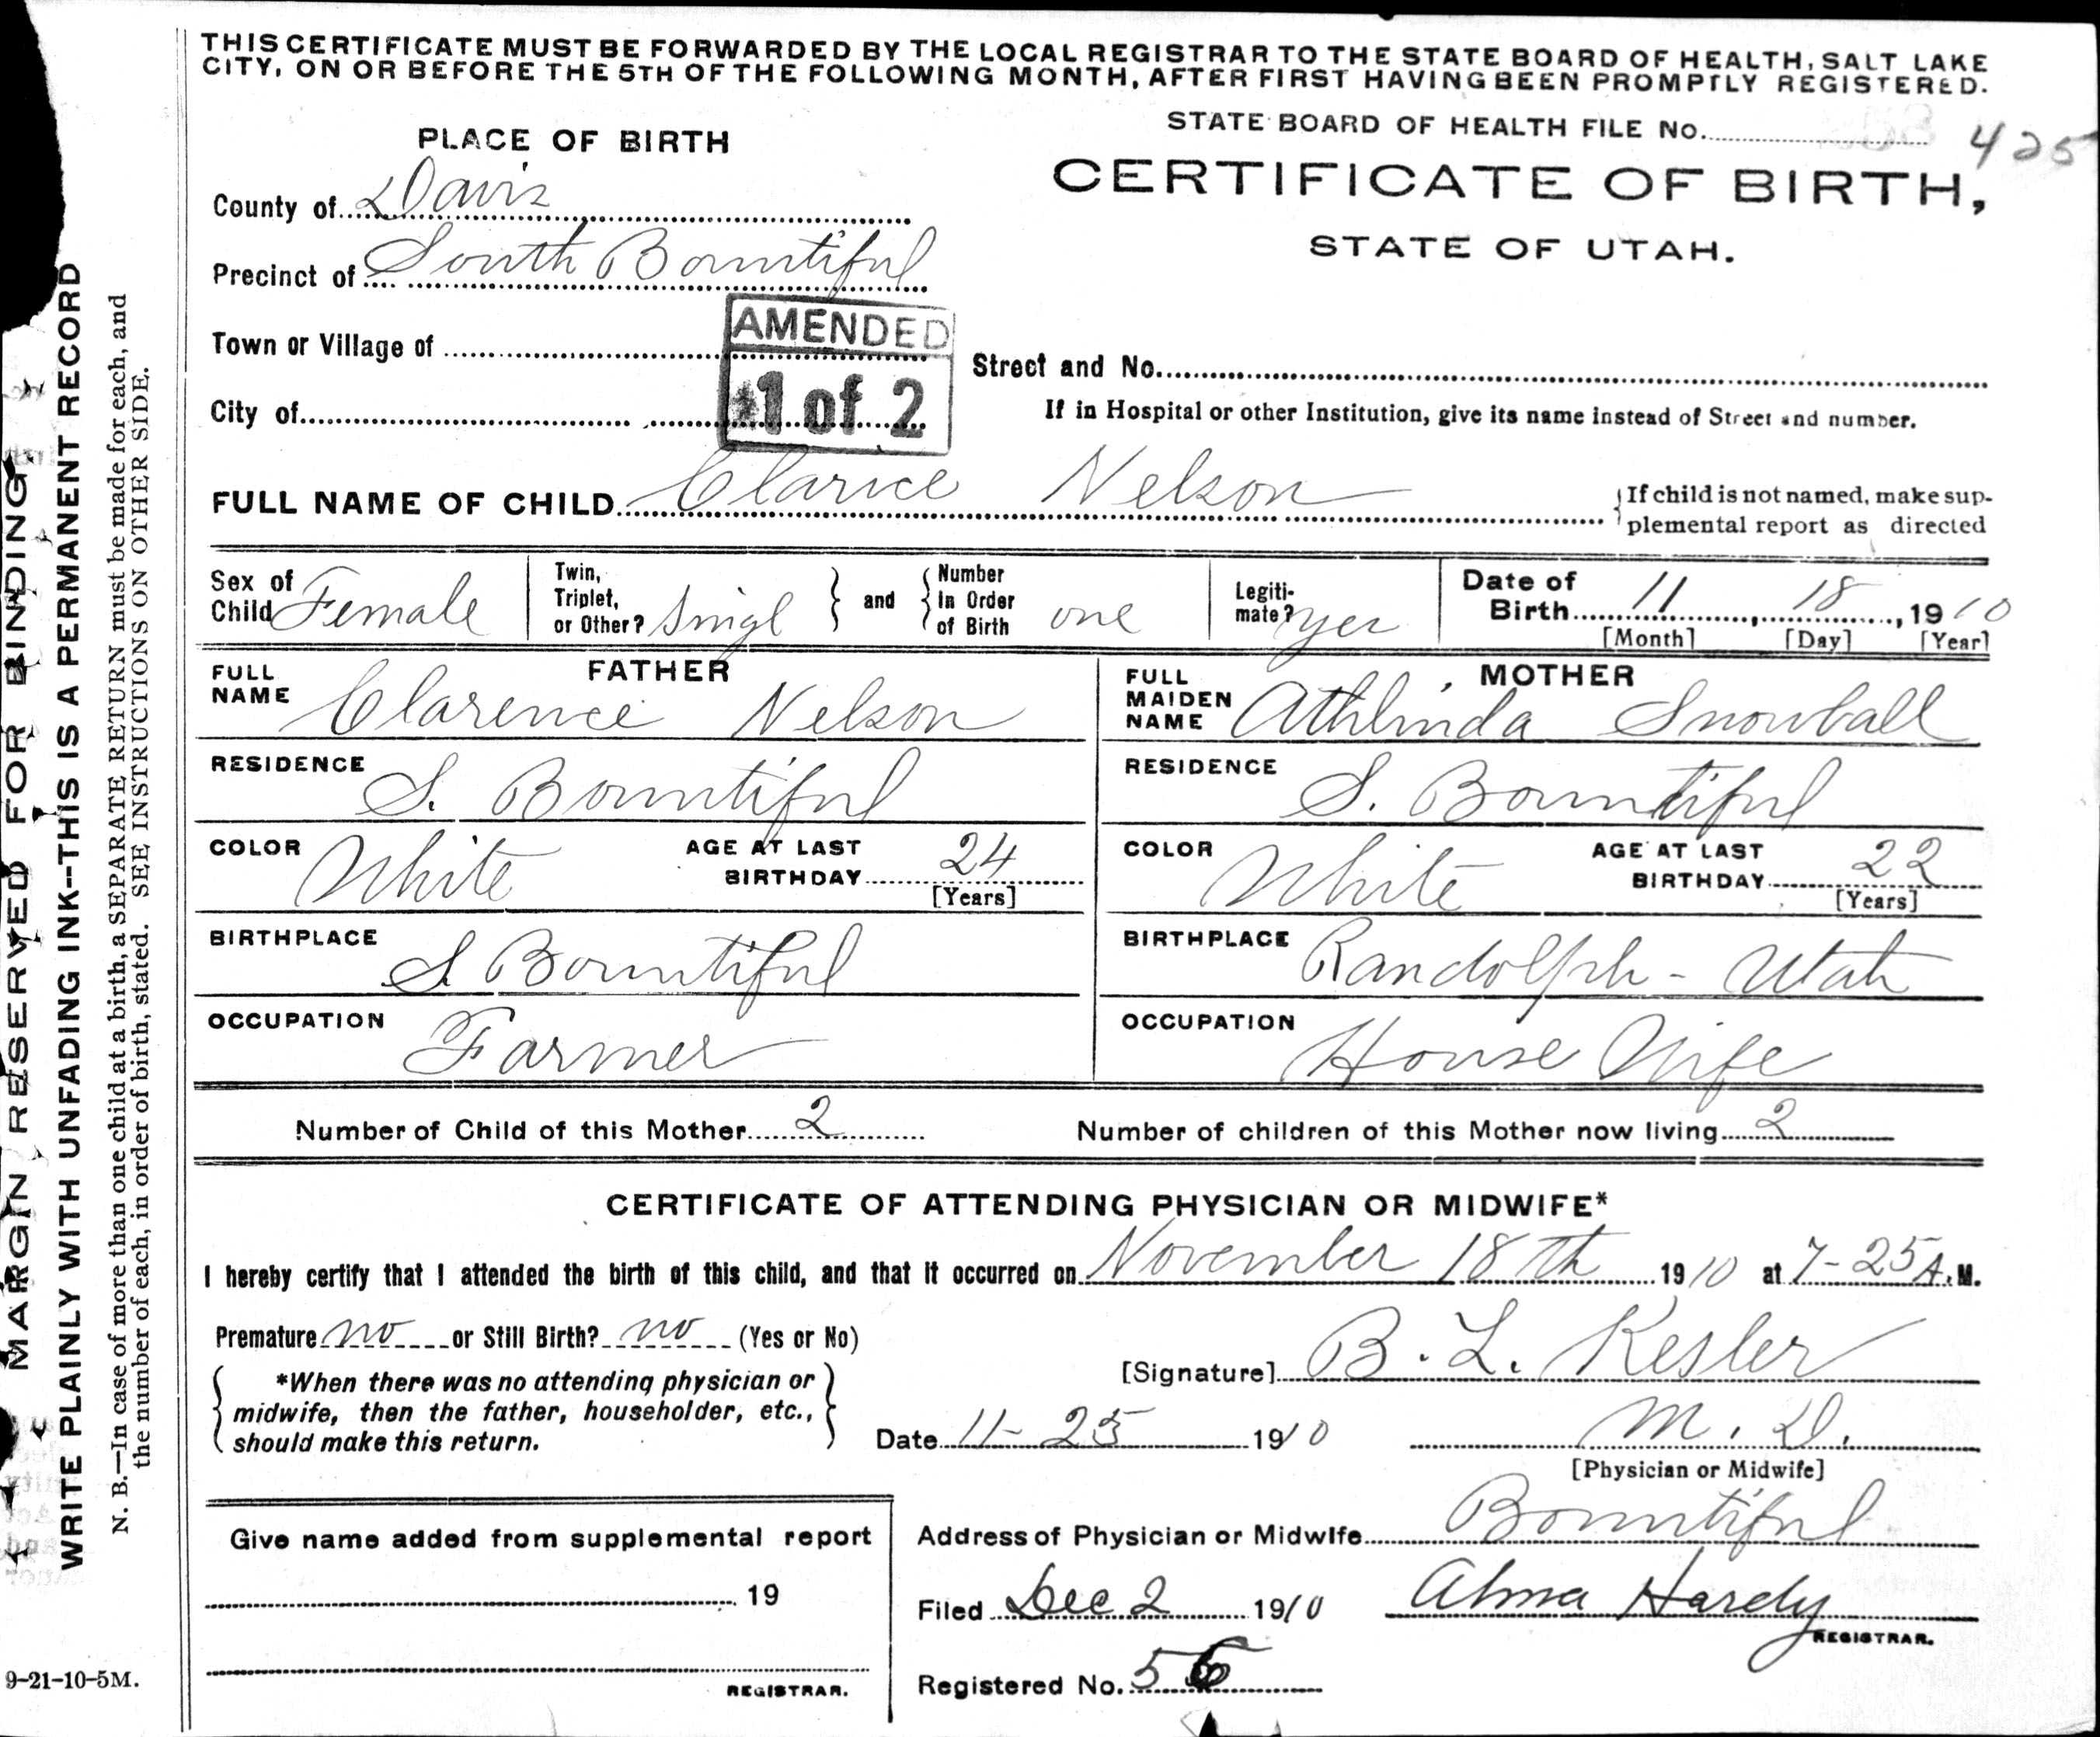 THIS CERTIFICATE MUST BE FORWARDED BY THE LOCAL REGISTRAR TO THE STATE BOARD OF HEALTH, SALT LAKE
CITY, ON OR BEFORE THE 5TH OF THE FOLLOWING MONTH, AFTER FIRST HAVING BEEN PROMPTLY REGISTERED.
STATE BOARD OF HEALTH FILE No. 425
PLACE OF BIRTH
CERTIFICATE OF BIRTH,
STATE OF UTAH.
County of Davis
Precinct of South Bountiful
Town or Village of
AMENDED
1 of 2
Street and No.
City of
If in Hospital or other Institution, give its name instead of Street and number.
FULL NAME OF CHILD Clarice Nelson
{If child is not named, make sup-
plemental report as directed
Sex of Child Female
Twin, Triplet, or Other? Singl } and { Number In Order of Birth one
Legiti-mate? yes
Date of Birth 11, 18, 1910
[Month] [Day] [Year]
FATHER
FULL NAME Clarence Nelson
MOTHER
FULL MAIDEN NAME Athlinda Snowball
RESIDENCE S. Bountiful
RESIDENCE S. Bountiful
COLOR White AGE AT LAST BIRTHDAY 24 [Years]
COLOR White AGE AT LAST BIRTHDAY 22 [Years]
BIRTHPLACE S. Bountiful
BIRTHPLACE Randolph - Utah
OCCUPATION Farmer
OCCUPATION House Wife
Number of Child of this Mother 2 Number of children of this Mother now living 2
CERTIFICATE OF ATTENDING PHYSICIAN OR MIDWIFE*
I hereby certify that I attended the birth of this child, and that it occurred on November 18th 1910 at 7-25 A.M.
Premature no or Still Birth? no (Yes or No)
[Signature] B. L. Kesler
*When there was no attending physician or
midwife, then the father, householder, etc.,
should make this return.
Date 11-25 1910 M. D.
[Physician or Midwife]
Give name added from supplemental report
19
REGISTRAR.
Address of Physician or Midwife Bountiful
Filed Dec 2 1910 Alma Hardy
REGISTRAR.
Registered No. 56
MARGIN RESERVED FOR BINDING
WRITE PLAINLY WITH UNFADING INK--THIS IS A PERMANENT RECORD
N. B.—In case of more than one child at a birth, a SEPARATE RETURN must be made for each, and
the number of each, in order of birth, stated. SEE INSTRUCTIONS ON OTHER SIDE.
9-21-10-5M.